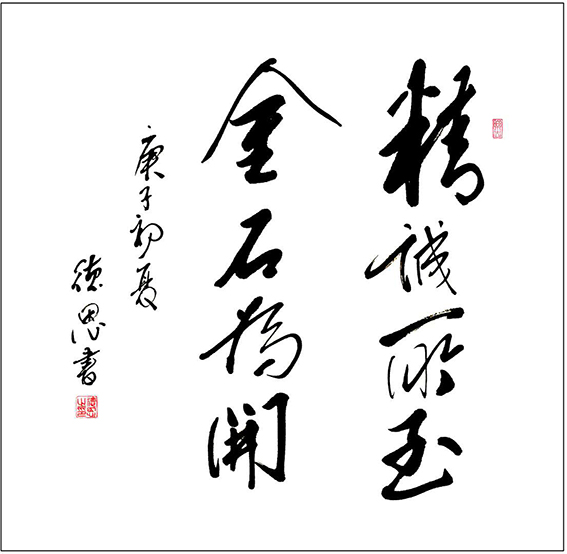 精誠所至
金石為開
庚子初夏
德恩書